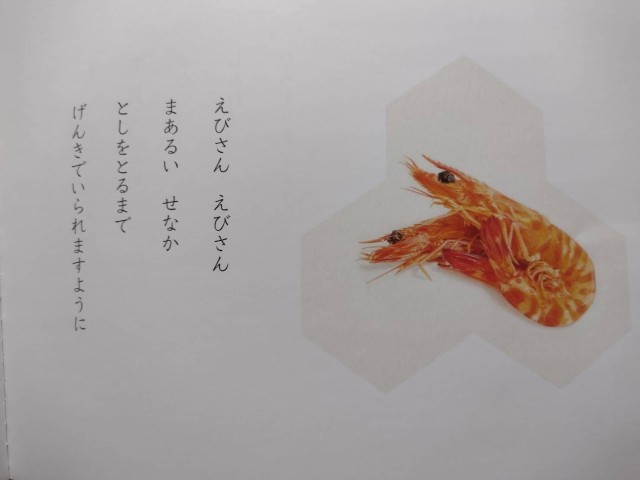 えびさん　えびさん
まあるい　せなか
としをとるまで
げんきでいられますように